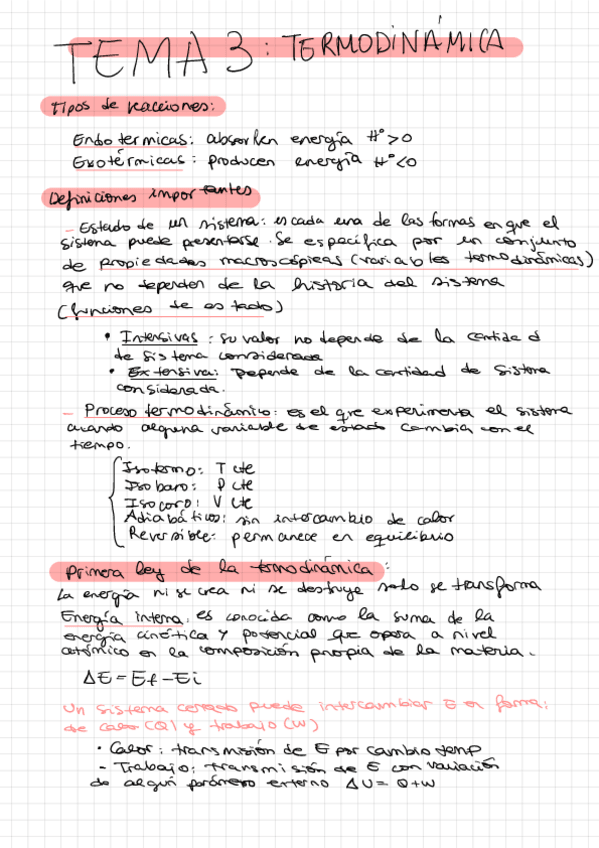 TEMA 3: TERMODINÁMICA
Tipos de reacciones:
Endotermicas: absorben energía H°>0
Exotérmicas: producen energía H°<0
Definiciones importantes
- Estado de un sistema: es cada una de las formas en que el
sistema puede presentarse. Se especifica por un conjunto
de propiedades macroscópicas (variables termodinámicas)
que no dependen de la historia del sistema
(funciones de estado)
• Intensivas: su valor no depende de la cantidad
de sistema considerada
• Extensiva: Depende de la cantidad de sistema
considerada.
- Proceso termodinámico: es el que experimenta el sistema
cuando alguna variable de estado cambia con el
tiempo.
Isotermo: T cte
Isobaro: P cte
Isocoro: V cte
Adiabáticos: sin intercambio de calor
Reversible: permanece en equilibrio
Primera ley de la termodinámica:
La energía ni se crea ni se destruye solo se transforma
Energía interna: es conocida como la suma de la
energía cinética y potencial que opera a nivel
atómico en la composición propia de la materia.
ΔE = Ef - Ei
Un sistema cerrado puede intercambiar E en forma:
de calor (Q) y trabajo (W)
• Calor: transmisión de E por cambio temp
- Trabajo: transmisión de E con variación
de algún parámetro externo ΔU = Q+W